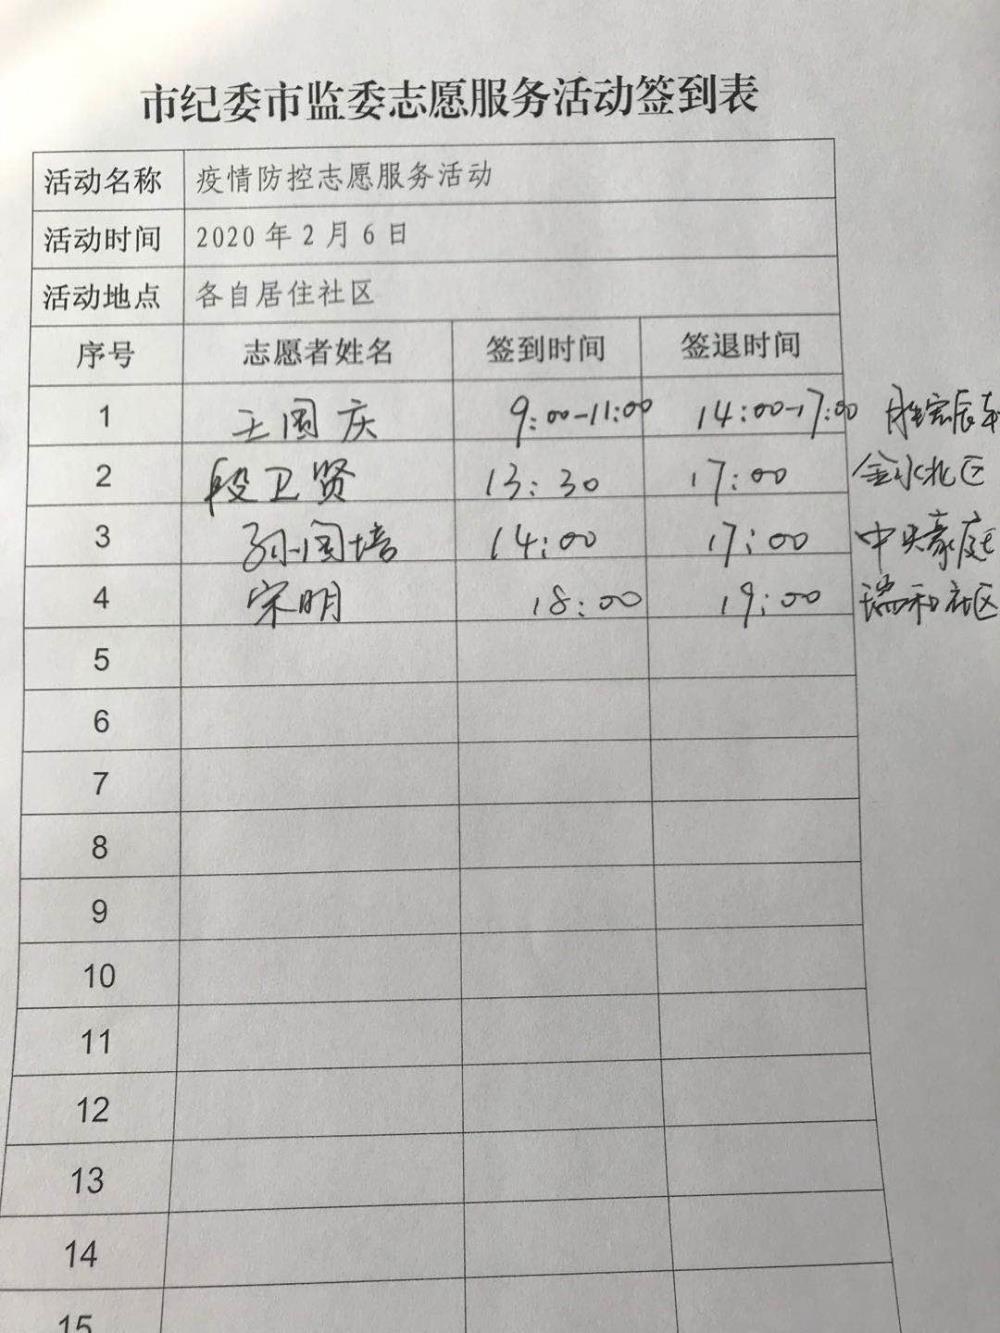 市纪委市监委志愿服务活动签到表
活动名称 疫情防控志愿服务活动
活动时间 2020年2月6日
活动地点 各自居住社区
序号 志愿者姓名 签到时间 签退时间
1 王国庆 9:00-11:00 14:00-17:00
2 段卫贤 13:30 17:00 金水北区
3 孙国培 14:00 17:00 中央豪庭
4 宋明 18:00 19:00 瑞和社区
5
6
7
8
9
10
11
12
13
14
15